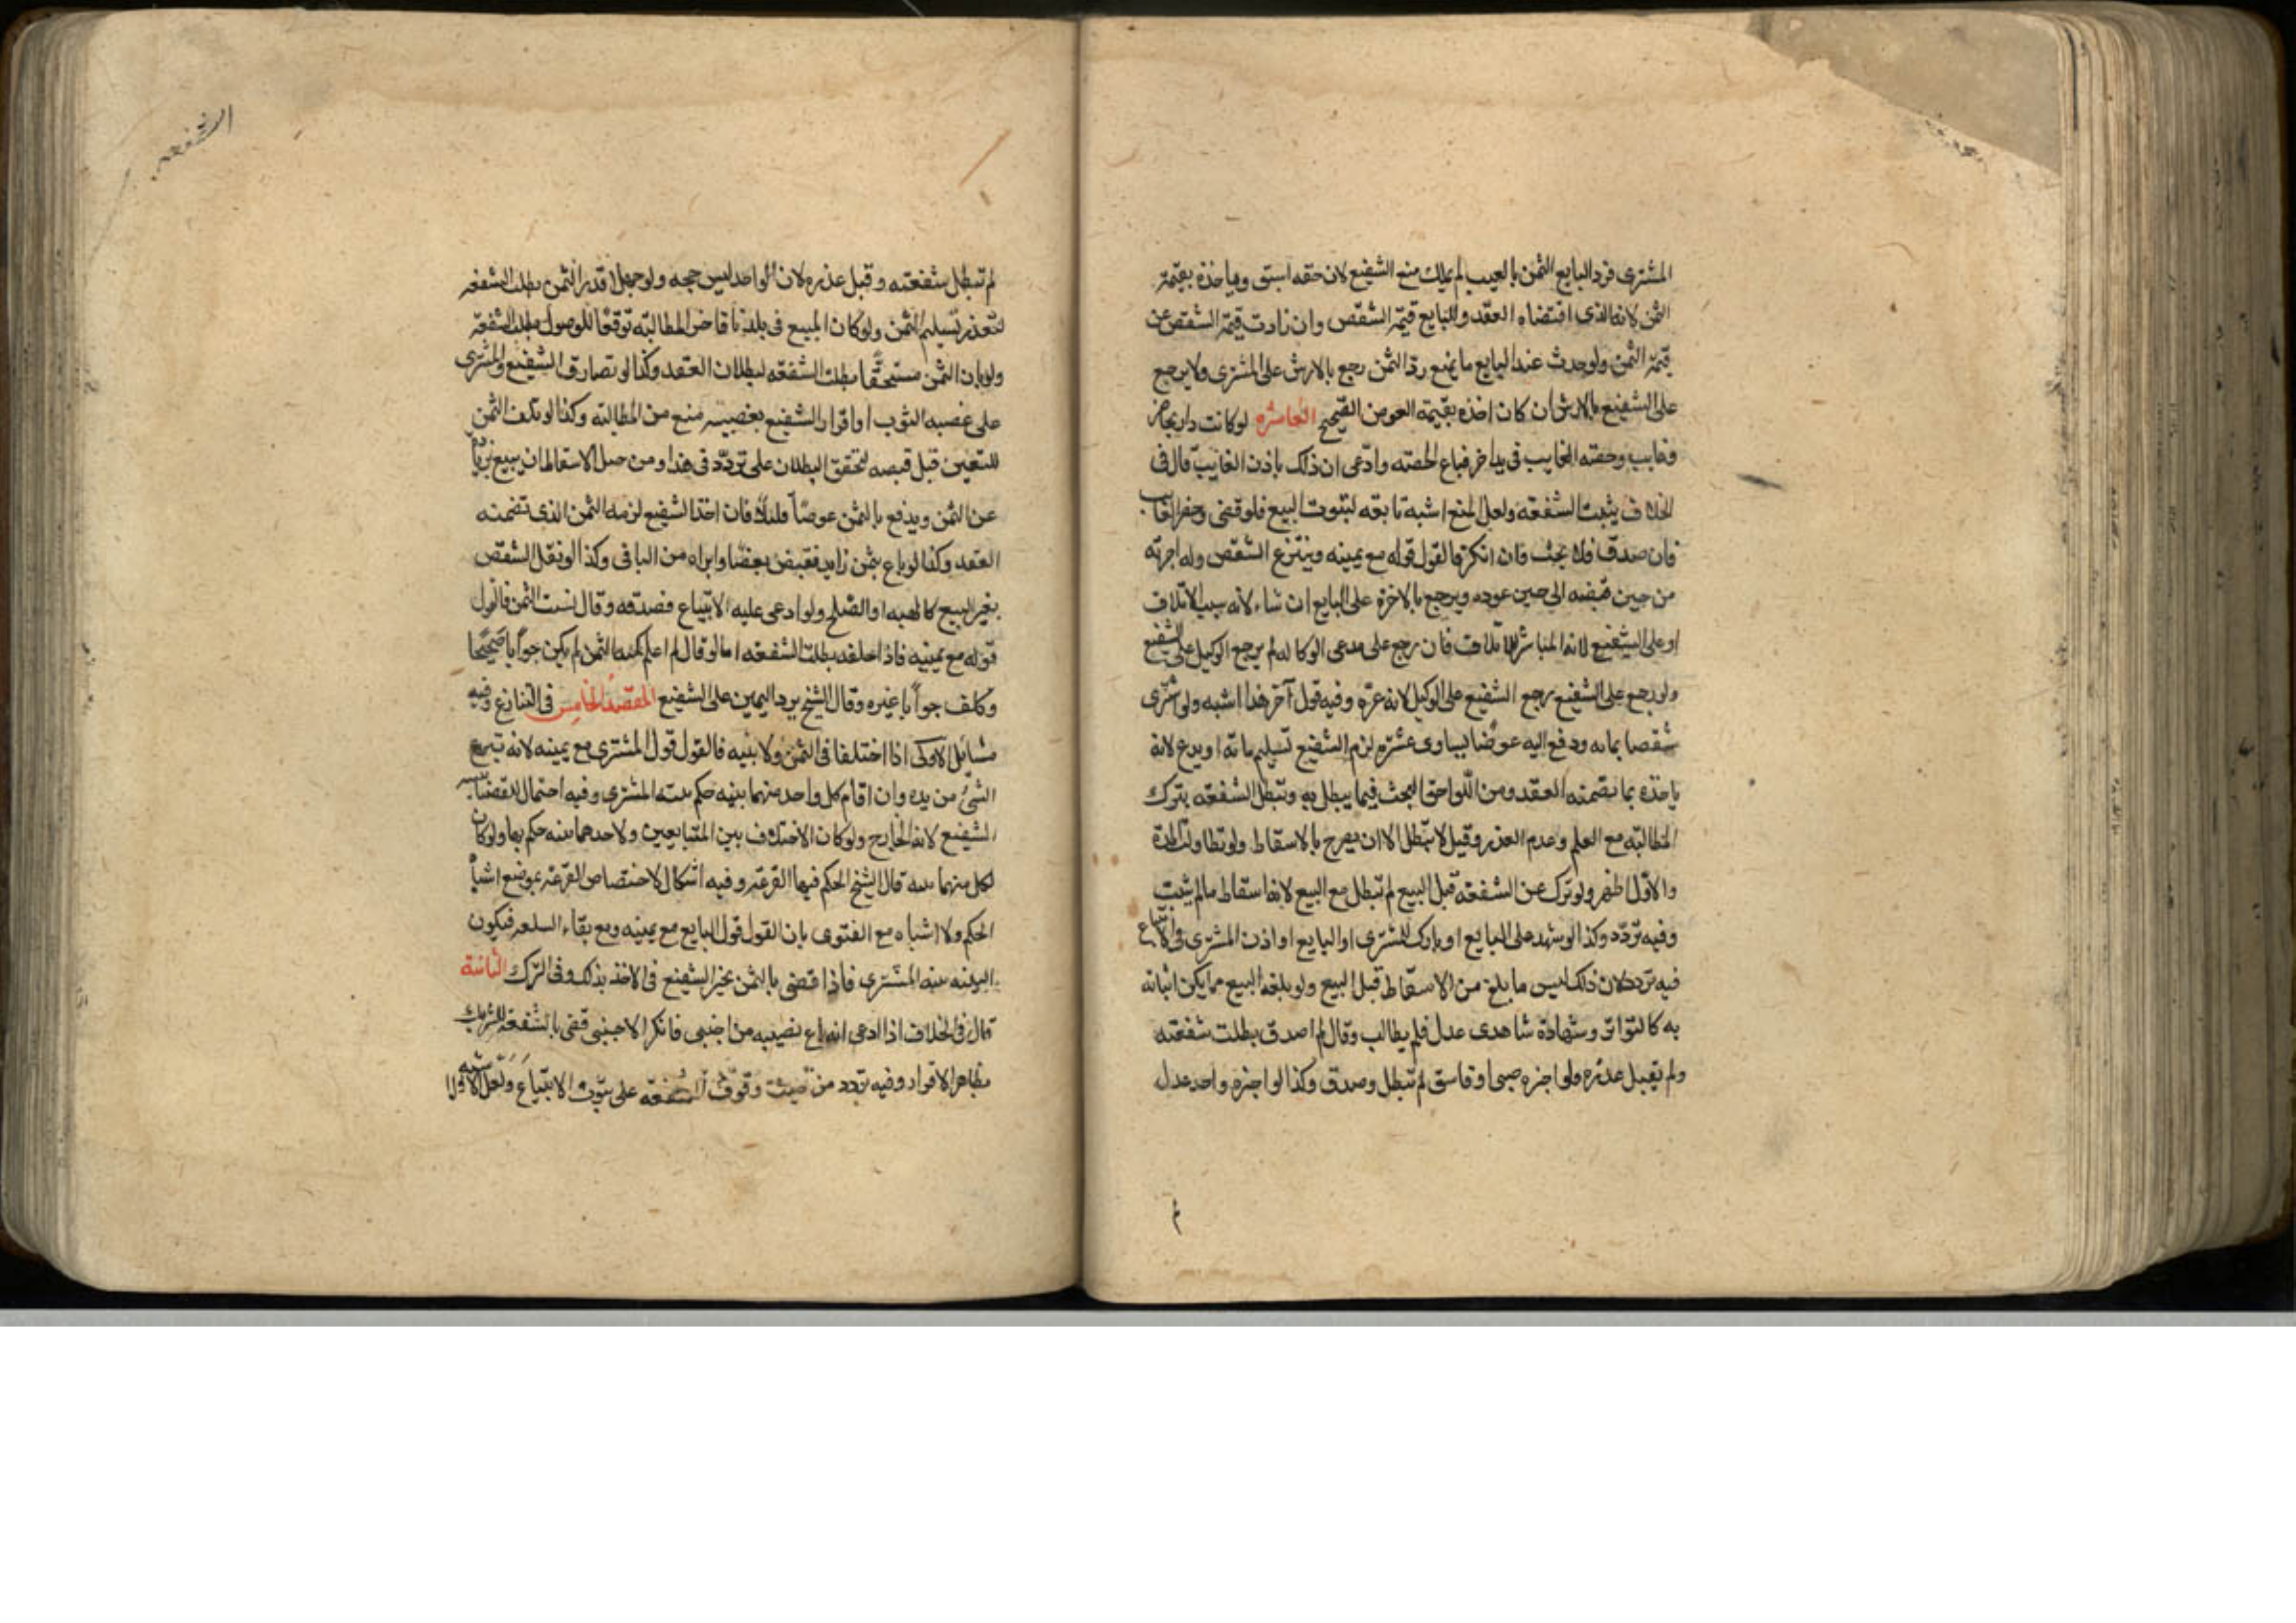 المشترى فرد البايع الثمن بالعيب لم يملك منع الشفيع لان حقه اسبق وياخذه بقيمة
الثمن لانه الذى اقتضاه العقد وللبايع قيمة الشقص وان زادت قيمة الشقص عن
قيمة الثمن ولو حدث عند البايع ما يمنع رد الثمن رجع بالارش على المشترى ولا يرجع
على الشفيع بالارش ان كان اخذه بقيمة العوض الصحيح العاشره لو كانت دار بحاضر
وغايب وحصته الغايب فى يد اخر فباع الحصته وادعى ان ذلك باذن الغايب قال فى
الخلاف يثبت الشفعه ولعل المنع اشبه تابعه لثبوت البيع فلو قضى وحضر الغايب
فان صدق فلا بحث فان انكر فالقول قوله مع يمينه وينتزع الشقص وله اجرته
من حين قبضه الى حين عوده ويرجع بالاخرة على البايع ان شاء لانه سبب الاتلاف
او على الشفيع لانه المباشر للاتلاف فان رجع على مدعى الوكاله لم يرجع الوكيل على الشفيع
ولو رجع على الشفيع رجع الشفيع على الوكيل لانه غره وفيه قول آخر هذا اشبه ولو اشترى
شقصا بمايه ودفع اليه عوضا يساوى عشره لزم الشفيع تسليم مائه او يدع لانه
ياخذه بما تضمنه العقد ومن اللواحق البحث فيما يبطل به وتبطل الشفعه بترك
المطالبته مع العلم وعدم العذر وقيل لا تبطل الا ان يصرح بالاسقاط ولو تطاولت المدة
والاول اظهر ولو ترك عن الشفعه قبل البيع لم تبطل مع البيع لانه اسقاط ما لم يثبت
وفيه تردد وكذا لو شهد على البايع او بارك للمشترى او البايع او اذن المشترى فى الابتياع
فيه تردد لان ذلك ليس ما بلغ من الاسقاط قبل البيع ولو بلغه البيع مما يمكن اثباته
به كالتواتر وشهادة شاهدى عدل فلم يطالب وقال لم اصدق بطلت شفعته
ولم يقبل عذره ولو اخبره صبى او فاسق لم تبطل وصدق وكذا لو اخبره واحد عدل
الشفعه
لم تبطل شفعته وقبل عذره لان الواحد ليس حجه ولو جهلا قدر الثمن بطلت الشفعه
لتعذر تسليم الثمن ولو كان المبيع فى بلد ناء فاخر المطالبته توقعا للوصول بطلت الشفعة
ولو بان الثمن مستحقا بطلت الشفعه لبطلان العقد وكذا لو تصادق الشفيع والمشترى
على غصبه الثوب او اقرار الشفيع بغصبيه منع من المطالبته وكذا لو تلف الثمن
المعين قبل قبضه لتحقق البطلان على تردد فى هذا ومن حيل الاسقاط ان يبيع بزيادة
عن الثمن ويدفع بالثمن عوضا قليلا فان اخذ الشفيع لزمه الثمن الذى تضمنه
العقد وكذا لو باع بثمن زايد فقبض بعضا وابراه من الباقى وكذا لو نقل الشقص
بغير البيع كالهبه او الصلح ولو ادعى عليه الابتياع فصدقه وقال نسيت الثمن فالقول
قوله مع يمينه فاذا حلف بطلت الشفعه اما لو قال لم اعلم كميه الثمن لم يكن جوابا صحيحا
وكلف جوابا غيره وقال الشيخ يرد اليمين على الشفيع المقصد الخامس فى التنازع وفيه
مسائل الاولى اذا اختلفا فى الثمن ولا بنيه فالقول قول المشترى مع يمينه لانه ينتزع
الشئ من يده وان اقام كل واحد منهما بينه حكم ببينه المشترى وفيه احتمال للقضا ببينه
الشفيع لانه الخارج ولو كان الاختلاف بين المتبايعين ولاحدهما بينه حكم بها ولو كان
لكل منهما بينه قال الشيخ الحكم فيها القرعة وفيه اشكال لاختصاص القرعة بموضع اشتباه
الحكم ولا اشتباه مع الفتوى بان القول قول البايع مع يمينه ومع بقاء السلعه فيكون
البينه بينه المشترى فاذا قضى بالثمن تخير الشفيع فى الاخذ بذلك وفى الترك الثانية
قال فى الخلاف اذا ادعى انه باع نصيبه من اجنبى فانكر الاجنبى قضى بالشفعة للشريك
بظاهر الاقرار وفيه تردد من حيث وقوف الشفعه على ثبوت الابتياع ولعل الاول اشبه